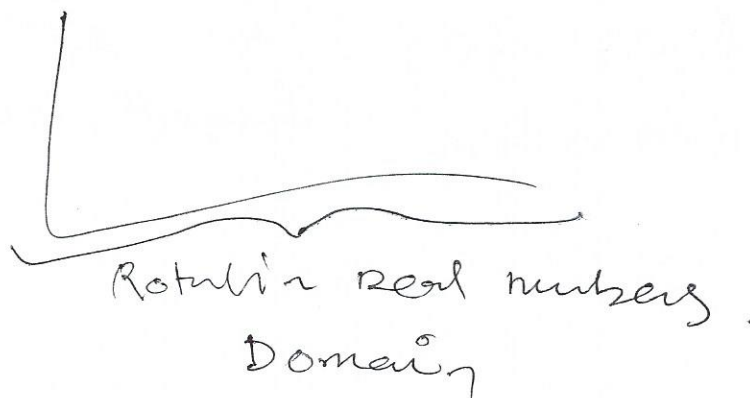 Rotation real numbers.
Domain